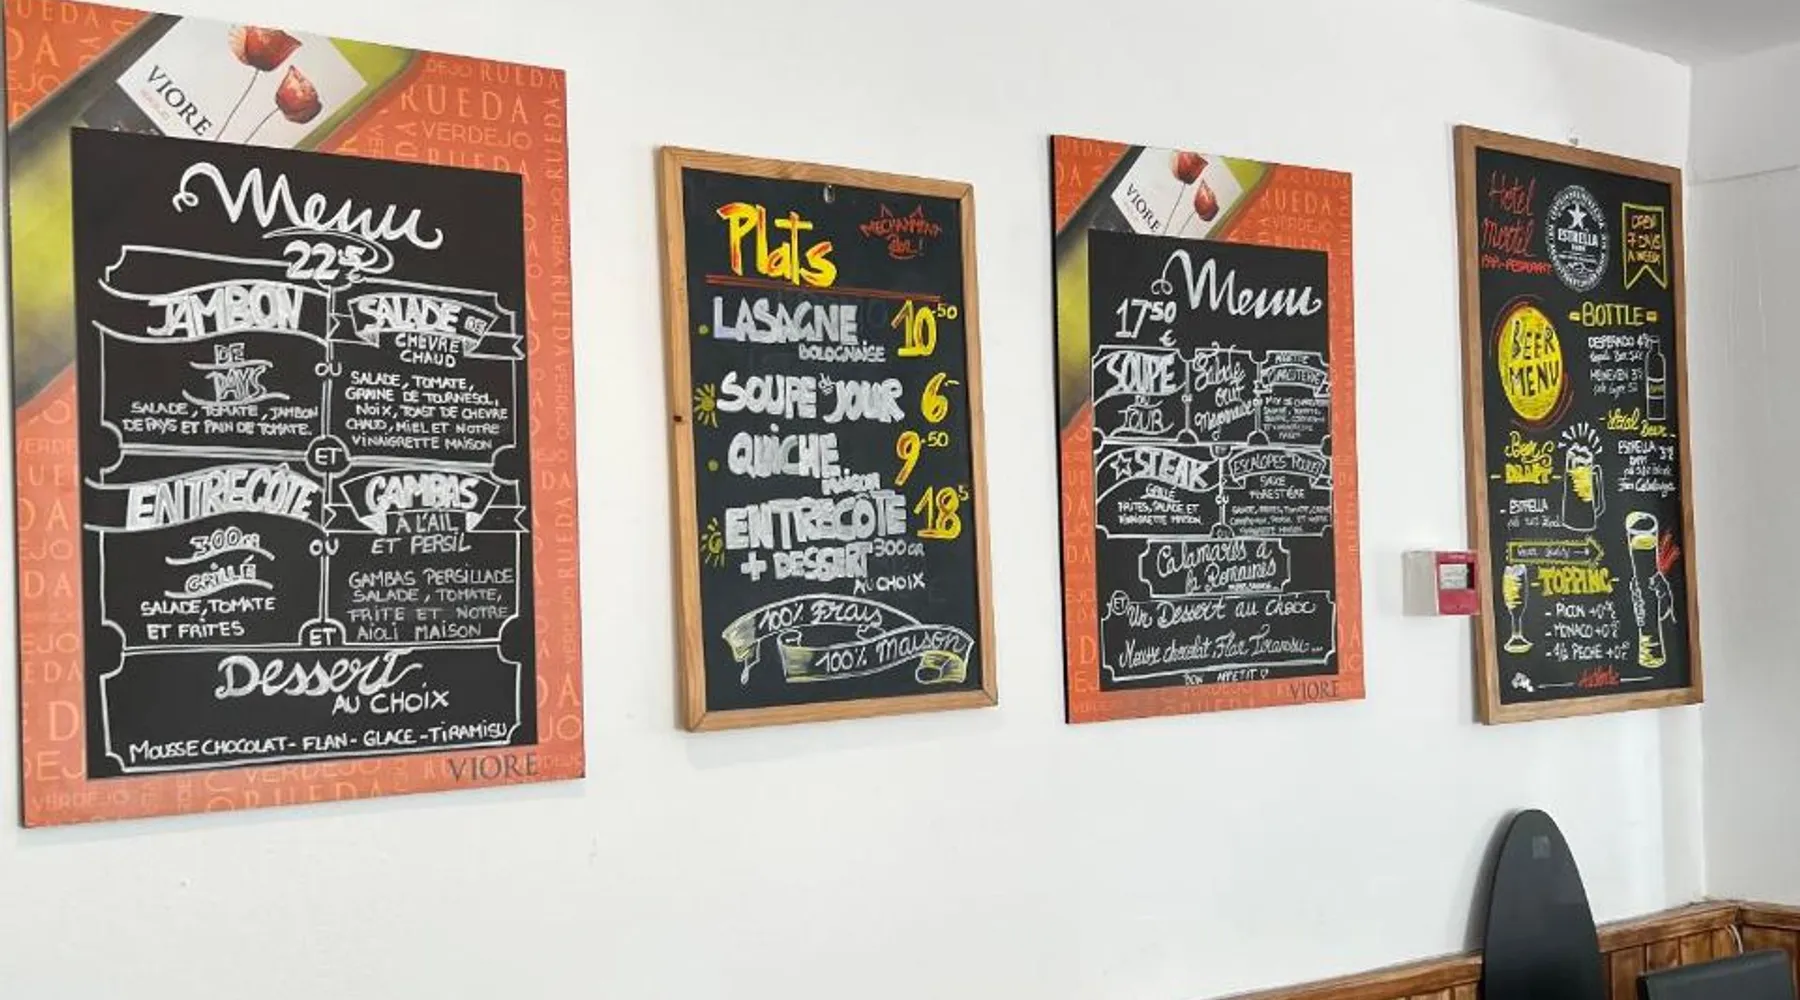 VIORE
Menu
22.5€
JAMBON
DE
PAYS
SALADE, TOMATE, JAMBON
DE PAYS ET PAIN DE TOMATE.
OU
SALADE DE
CHEVRE
CHAUD
SALADE, TOMATE,
GRAINE DE TOURNESOL,
NOIX, TOAST DE CHEVRE
CHAUD, MIEL ET NOTRE
VINAIGRETTE MAISON
ET
ENTRECÔTE
300GR
GRILLÉ
SALADE, TOMATE
ET FRITES
OU
GAMBAS
À L'AIL
ET PERSIL
GAMBAS PERSILLADE
SALADE, TOMATE,
FRITE ET NOTRE
AÏOLI MAISON
ET
Dessert
AU CHOIX
MOUSSE CHOCOLAT - FLAN - GLACE - TIRAMISU
VIORE
RUEDA
VERDEJO
Plats
LASAGNE 10.50
BOLOGNAISE
SOUPE du JOUR 6-
QUICHE 9.50
Maison
ENTRECÔTE 18.5
+ DESSERT 300GR
AU CHOIX
100% Frais
100% Maison
VIORE
RUEDA
VERDEJO
Menu
17.50
€
SOUPE
DU
JOUR
STEAK
GRILLÉ
FRITES, SALADE ET
VINAIGRETTE MAISON
ESCALOPES POULET
FORESTIÈRE
Calamares à
la Romaines
ET
Un Dessert au choix
Mousse chocolat, Flan, Tiramisu...
BON APPETIT
VIORE
Hotel
ESTRELLA
OPEN
7 DAYS
A WEEK
BEER
MENU
BOTTLE
DESPERADO
Local Beer
ESTRELLA
Beer
DRAFT
ESTRELLA
TOPPING
- PICON
- MONACO
- PECHE